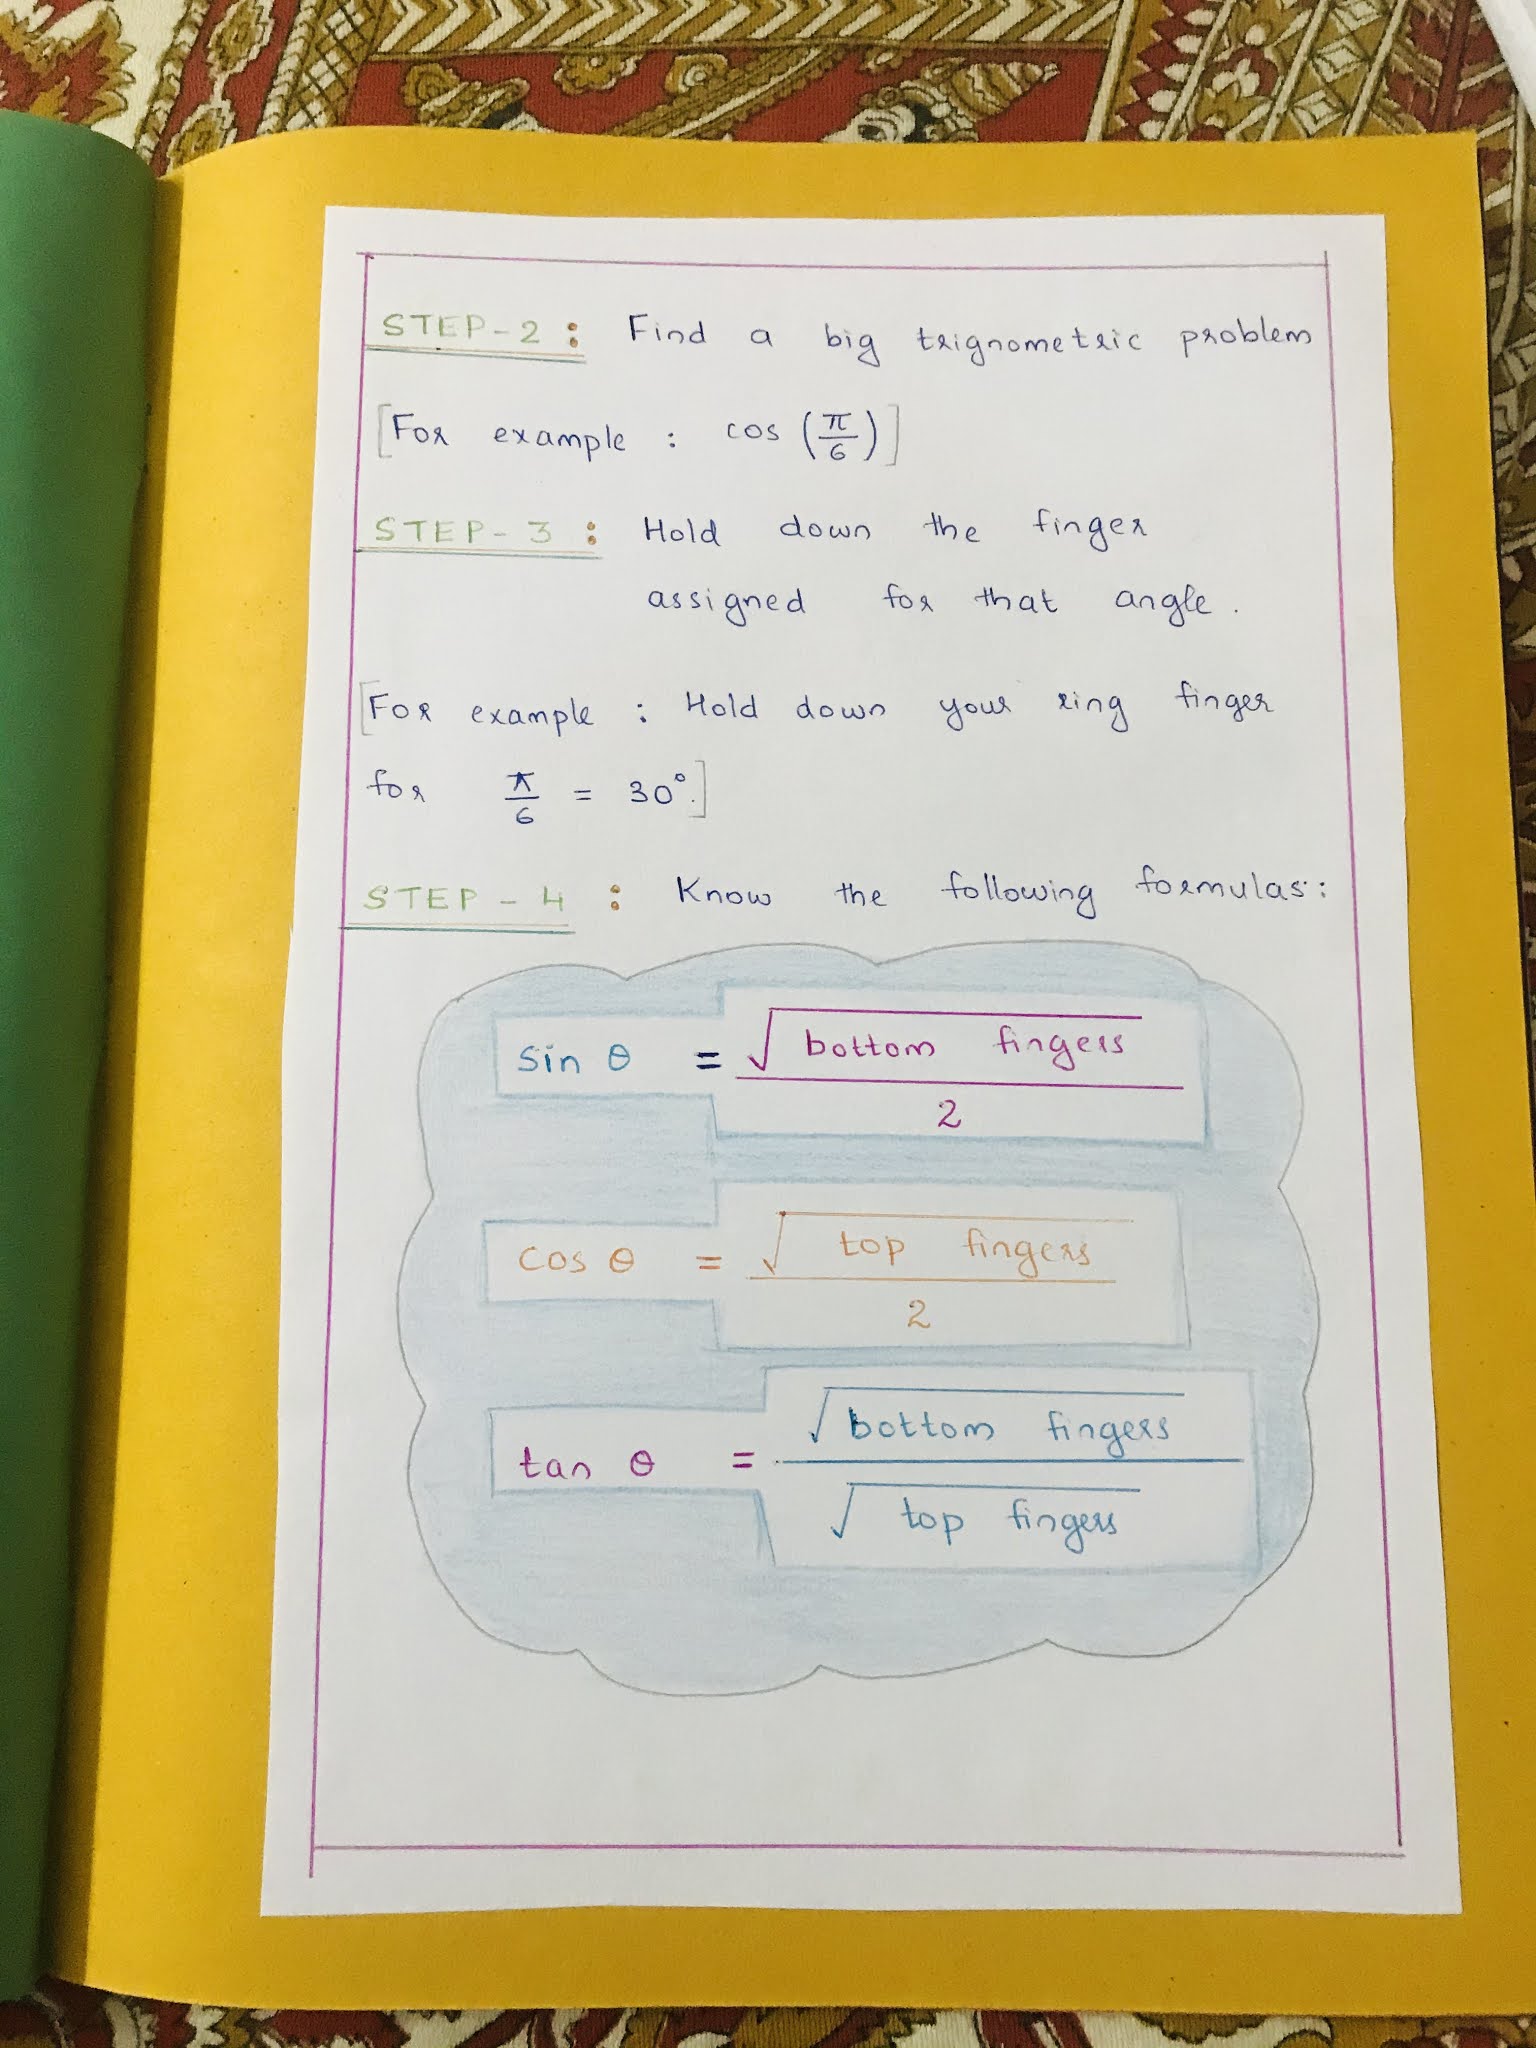 STEP-2 : Find a big trignometric problem
[For example : cos (π/6)]
STEP-3 : Hold down the finger
assigned for that angle.
[For example : Hold down your ring finger
for π/6 = 30°.]
STEP-4 : Know the following formulas:
sin θ = √bottom fingers / 2
cos θ = √top fingers / 2
tan θ = √bottom fingers / √top fingers